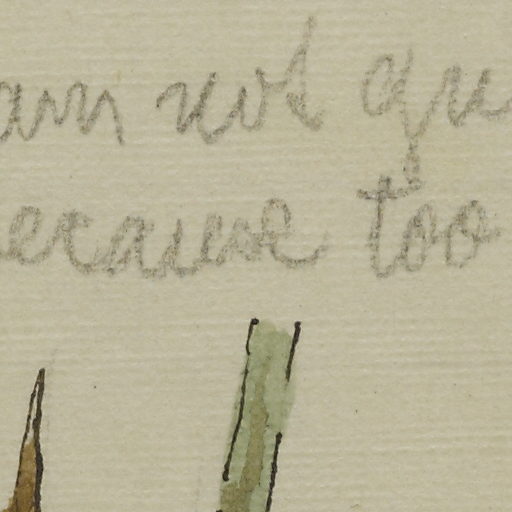 am not qu
ecause too